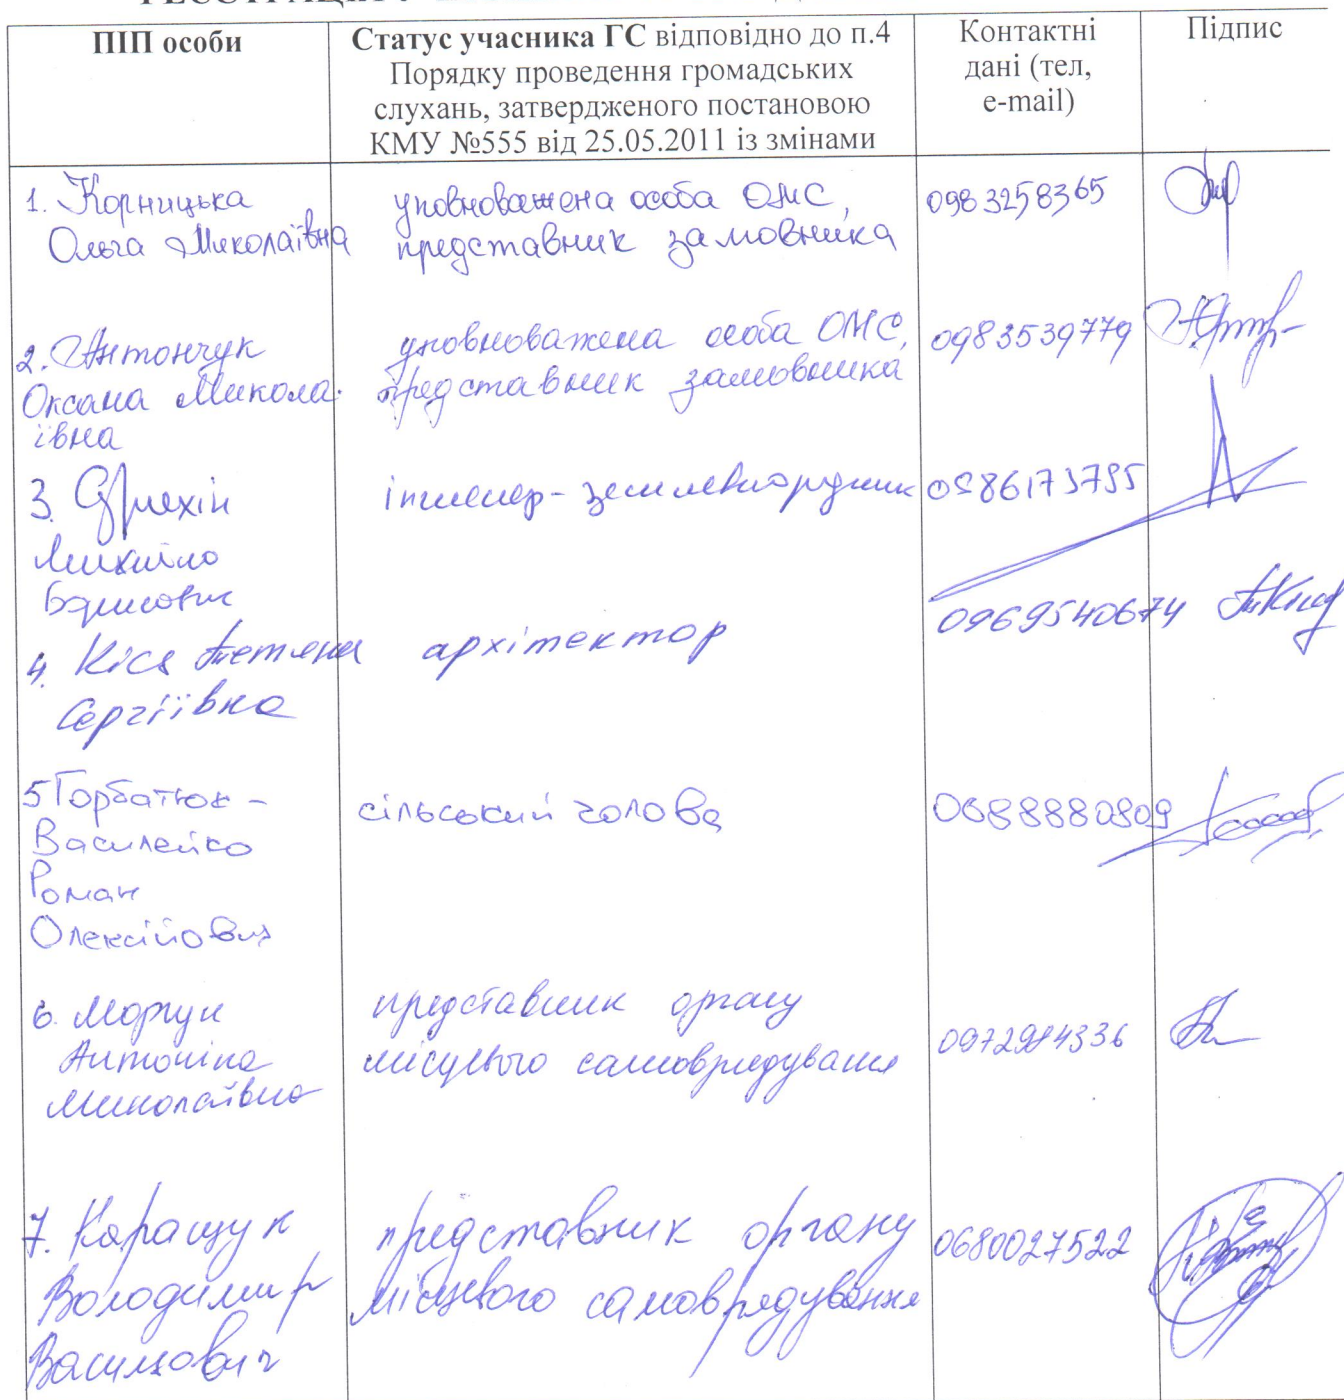 ПІП особи
Статус учасника ГС відповідно до п.4
Порядку проведення громадських
слухань, затвердженого постановою
КМУ №555 від 25.05.2011 із змінами
Контактні
дані (тел,
e-mail)
Підпис
1. Корницька
Ольга Миколаївна
уповноважена особа ОМС,
представник замовника
0983258365
2. Антончук
Оксана Микола-
ївна
уповноважена особа ОМС,
представник замовника
0983539779
3.
Михайло
Борисович
інженер-землевпорядник
4. Кіся Тетяна
Сергіївна
архітектор
0969540674
5 Горбатюк-
Василейко
Роман
Олексійович
сільський голова
0688880809
6. Моргун
Антоніна
Миколаївна
представник органу
місцевого самоврядування
7. Каращук
Володимир
Васильович
представник органу
місцевого самоврядування
0680027522